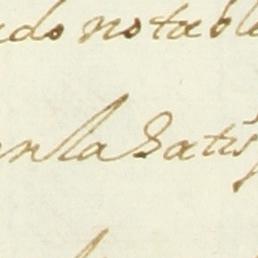 ado notable
en la Satis